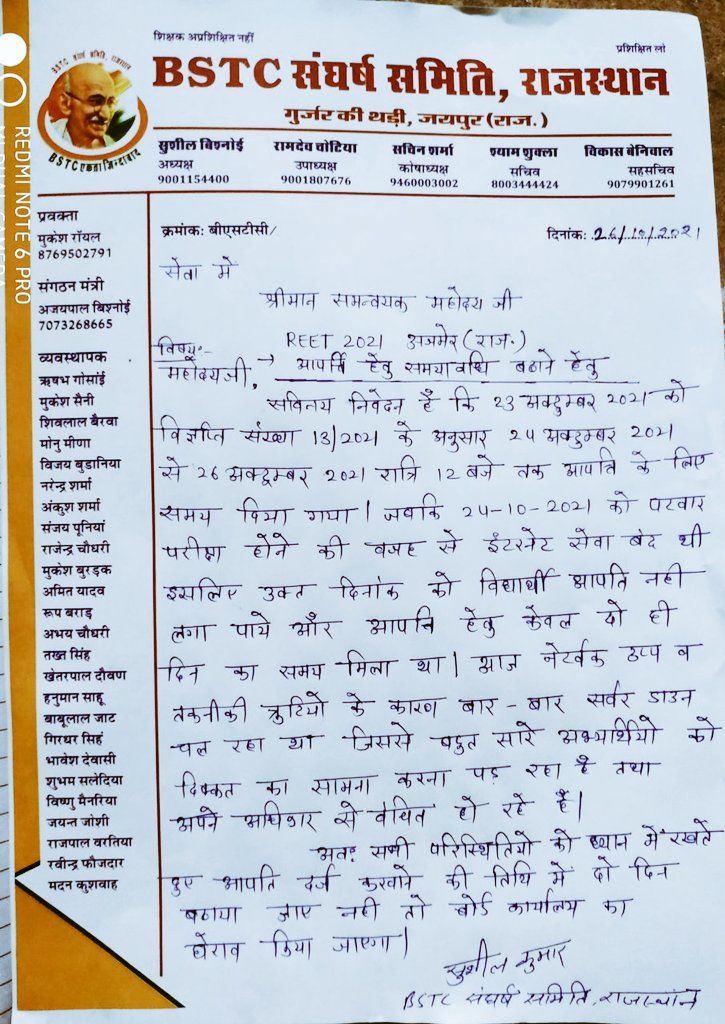 शिक्षक अप्रशिक्षित नहीं
प्रशिक्षित लो
BSTC संघर्ष समिति, राजस्थान
गुर्जर की थड़ी, जयपुर (राज.)
BSTC एकता जिन्दाबाद
सुशील बिश्नोई
अध्यक्ष
9001154400
रामदेव चोटिया
उपाध्यक्ष
9001807676
सचिन शर्मा
कोषाध्यक्ष
9460003002
श्याम शुक्ला
सचिव
8003444424
विकास बेनिवाल
सहसचिव
9079901261
प्रवक्ता
मुकेश रॉयल
8769502791
संगठन मंत्री
अजयपाल बिश्नोई
7073268665
व्यवस्थापक
ऋषभ गोसांई
मुकेश सैनी
शिवलाल बैरवा
मोनु मीणा
विजय बुडानिया
नरेन्द्र शर्मा
अंकुश शर्मा
संजय पूनियां
राजेन्द्र चौधरी
मुकेश बुरड़क
अमित यादव
रूप बराड़
अभय चौधरी
तख्त सिंह
खेतरपाल दौवण
हनुमान साहू
बाबूलाल जाट
गिरधर सिहं
भावेश देवासी
शुभम सलेदिया
विष्णु मैनरिया
जयन्त जोशी
राजपाल वरतिया
रवीन्द्र फौजदार
मदन कुशवाह
क्रमांक: बीएसटीसी/
दिनांक: 26/10/2021
सेवा में
श्रीमान समन्वयक महोदय जी
REET 2021 अजमेर (राज.)
विषय:- → आपत्ति हेतु समयावधि बढाने हेतु
महोदयजी,
सविनय निवेदन हैं कि 23 अक्टुम्बर 2021 को
विज्ञप्ति संख्या 13/2021 के अनुसार 24 अक्टुम्बर 2021
से 26 अक्टुम्बर 2021 रात्रि 12 बजे तक आपति के लिए
समय दिया गया। जबकि 24-10-2021 को पटवार
परीक्षा होने की वजह से इंटरनेट सेवा बंद थी
इसलिए उक्त दिनांक को विद्यार्थी आपति नही
लगा पाये और आपत्ति हेतु केवल दो ही
दिन का समय मिला था। आज नेटर्वक ठप्प व
तकनीकी त्रुटियो के कारण बार-बार सर्वर डाउन
चल रहा था जिससे बहुत सारे अभ्यार्थियो को
दिक्कत का सामना करना पड़ रहा है तथा
अपने अधिकार से वंचित हो रहे हैं।
अत: सभी परिस्थितियो को ध्यान में रखते
हुए आपति दर्ज करवाने की तिथि में दो दिन
बढाया जाए नही तो बोर्ड कार्यालय का
घेराव किया जाएगा।
सुशील कुमार
BSTC संघर्ष समिति, राजस्थान
REDMI NOTE 6 PRO